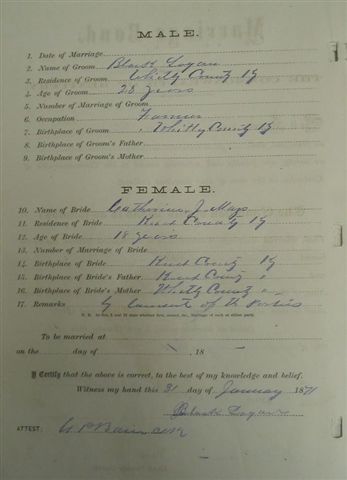 MALE.
1. Date of Marriage
2. Name of Groom Black Logan
3. Residence of Groom Whitly County Ky
4. Age of Groom 23 years
5. Number of Marriage of Groom
6. Occupation Farmer
7. Birthplace of Groom Whitly County Ky
8. Birthplace of Groom's Father
9. Birthplace of Groom's Mother
FEMALE.
10. Name of Bride Catherine J. Mays
11. Residence of Bride Knox County Ky
12. Age of Bride 18 years
13. Number of Marriage of Bride
14. Birthplace of Bride Knox County Ky
15. Birthplace of Bride's Father Knox County "
16. Birthplace of Bride's Mother Whitly County "
17. Remarks by consent of the Parties
To be married at
on the day of 18
I Certify that the above is correct, to the best of my knowledge and belief.
Witness my hand this 31 day of January 1871
ATTEST: